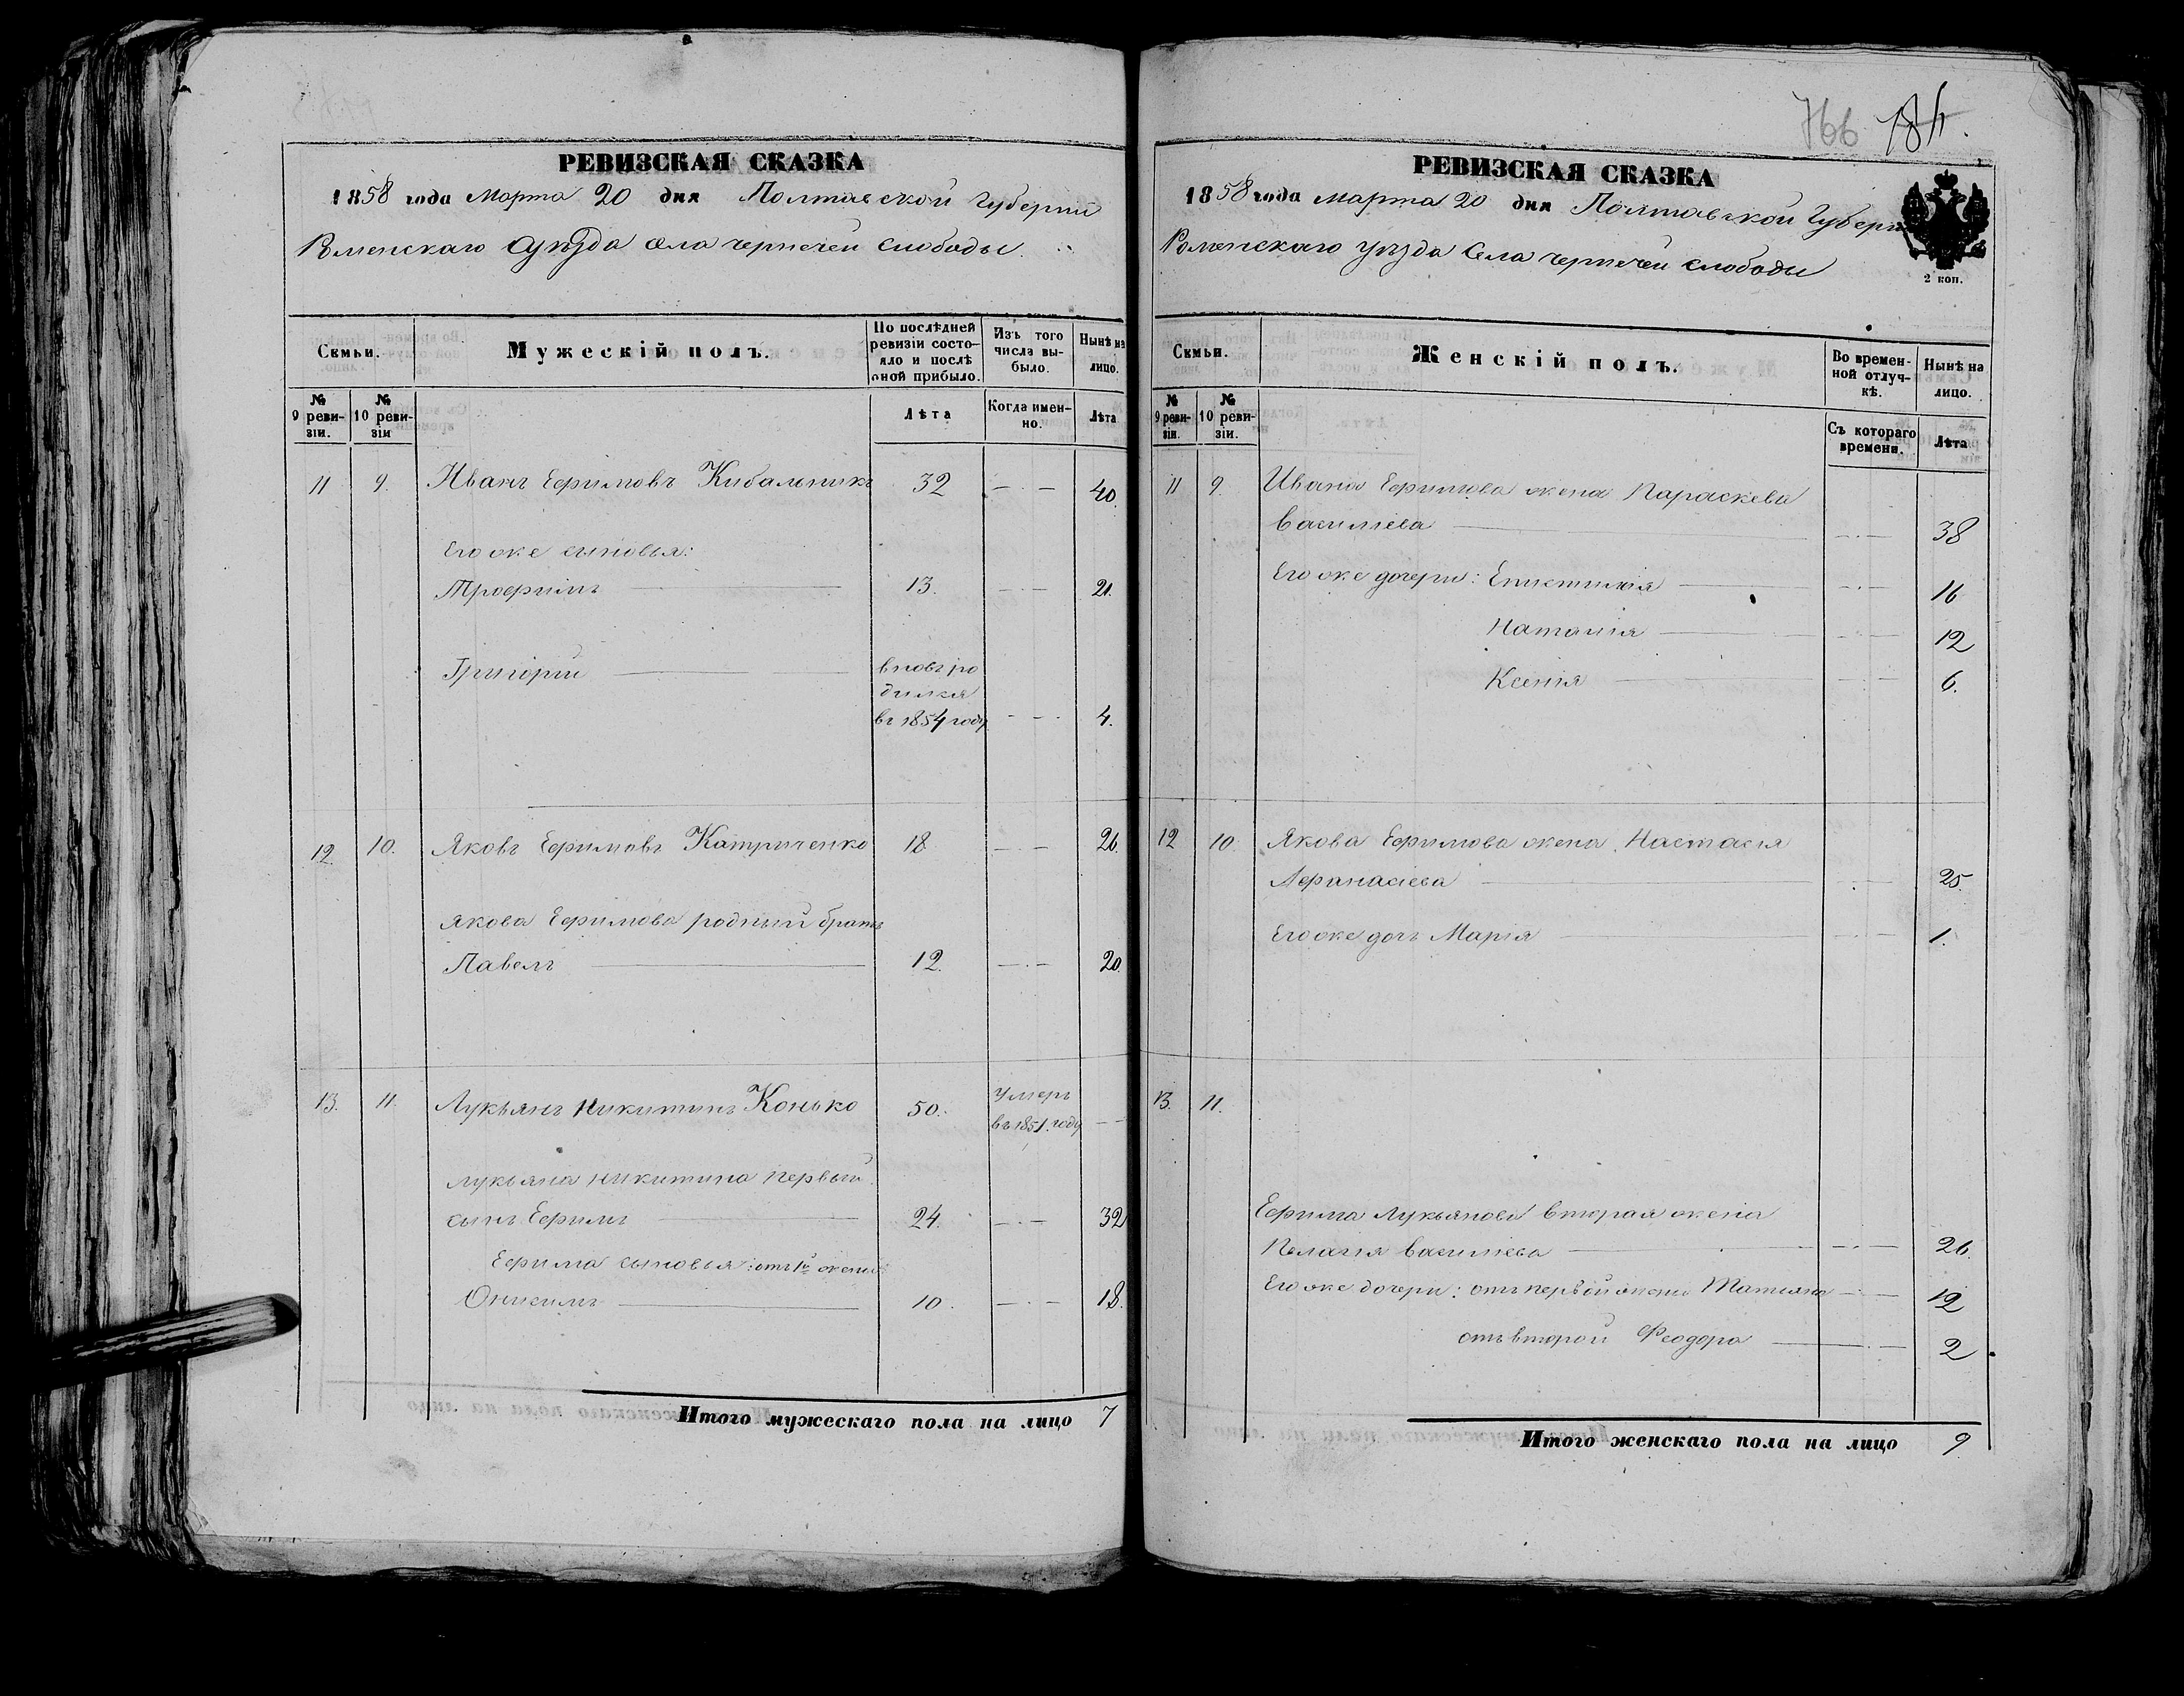 РЕВИЗСКАЯ СКАЗКА
1858 года Марта 20 дня Полтавской Губернии
Роменскаго Уѣзда Села Чернечей Слободы.
Семьи.
Мужескій полъ.
По послѣдней ревизіи состояло и послѣ оной прибыло.
Изъ того числа выбыло.
Нынѣ на лицо.
№ 9 ревизіи.
№ 10 ревизіи
Лѣта
Когда именно.
Лѣта
11 9. Иванъ Ефимовъ Кибальникъ 32 — . — 40.
Его же сыновья:
Трофимъ 13. — . — 21.
Григорій вновь ро
дился
въ 1854 году — . — 4.
12. 10. Яковъ Ефимовъ Катриченко 18 — . — 26.
Якова Ефимова родный братъ
Павелъ 12. — . — 20.
13. 11. Лукьянъ Никитинъ Конько 50. Умеръ
въ 1851. году —
Лукьяна Никитина первый
сынъ Ефимъ 24. — . — 32
Ефима сыновья: отъ 1й жены:
Онисимъ 10. — . — 18.
Итого мужескаго пола на лицо 7
766 184.
РЕВИЗСКАЯ СКАЗКА
1858 года марта 20 дня Полтавской Губерн
Роменскаго уѣзда Села Чернечей слободы
2 коп.
Семьи.
Женскій полъ.
Во временной отлучкѣ.
Нынѣ на лицо.
№ 9 ревизіи.
№ 10 ревизіи.
Съ котораго времени.
Лѣта
11 9. Ивана Ефимова жена Параскева
Василіева — . — 38
Его же дочери: Епистимія — . — 16
Наталія — . — 12
Ксенія — . — 6.
12 10. Якова Ефимова жена Настасія
Афанасіева — . — 25.
Его же дочь Марія — . — 1.
13. 11.
Ефима Лукьянова вторая жена
Пелагія Василіева — . — 26.
Его же дочери: отъ первой жены Татіяна — . — 12
отъ второй Феодора — . — 2
Итого женскаго пола на лицо 9.